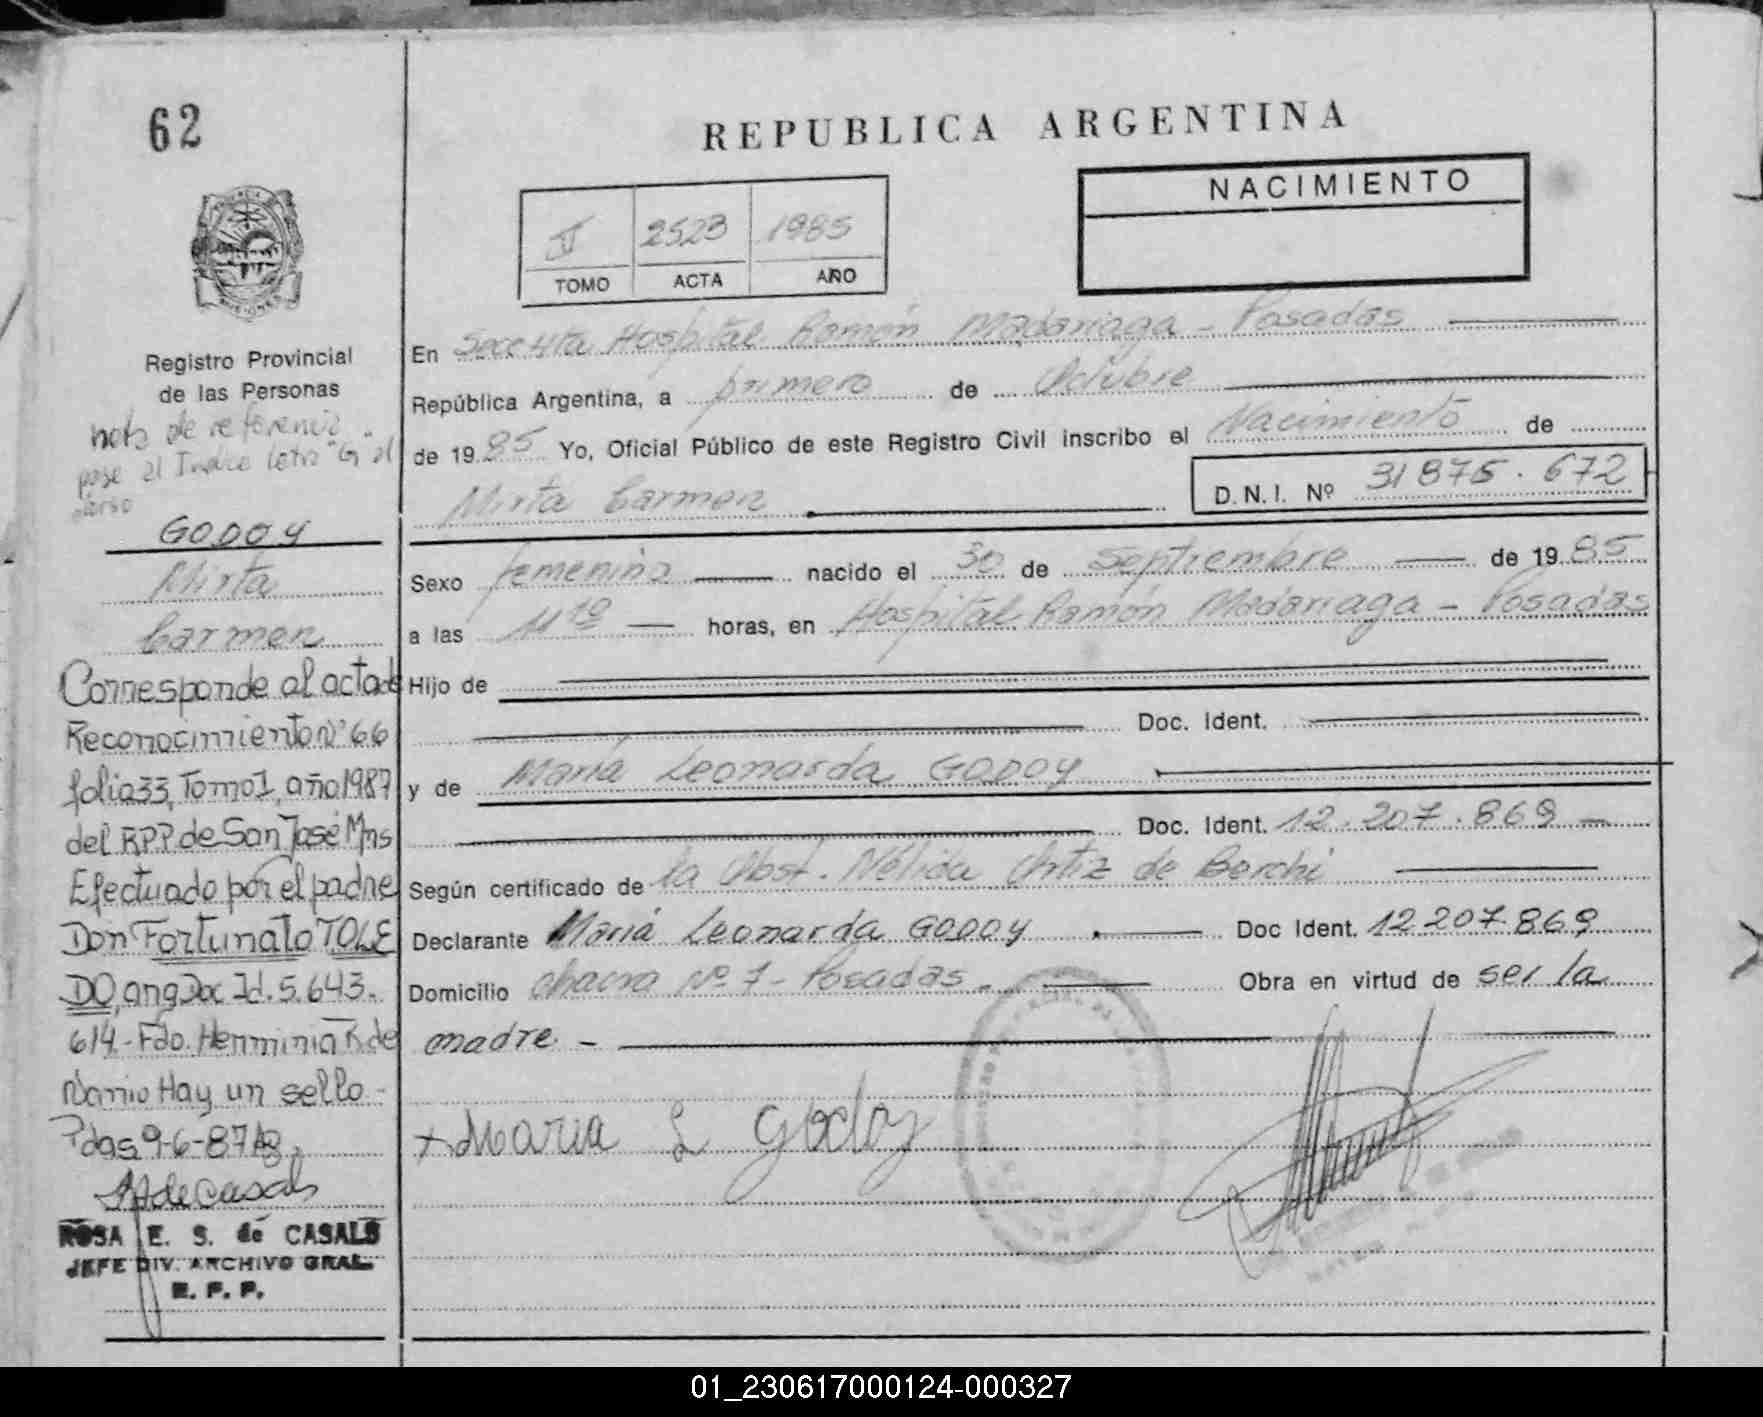 62
REPUBLICA ARGENTINA
NACIMIENTO
2523 1985
TOMO ACTA AÑO
Registro Provincial
de las Personas
nota de referencia
pase al Indice letra "G" al
dorso
GODOY
Mirta
Carmen
Corresponde al acta de
Reconocimiento Nº 66
folio 33, Tomo 1, año 1987
del RPP. de San José Mns
Efectuado por el padre
Don Fortunato TOLE
DO, arg Doc Id. 5.643.
614.- Fdo. Herminia K de
Hay un sello.-
Pdas 9-6-87
ROSA E. S. de CASALS
JEFE DIV. ARCHIVO GRAL.
R. P. P.
En Secc 4ta Hospital Ramón Madariaga - Posadas
República Argentina, a primero de Octubre
de 1985 Yo, Oficial Público de este Registro Civil inscribo el Nacimiento de
Mirta Carmen D.N.I. Nº 31875.672
Sexo femenino nacido el 30 de Septiembre de 1985
a las 11 10 horas, en Hospital Ramón Madariaga - Posadas
Hijo de
Doc. Ident.
y de María Leonarda GODOY
Doc. Ident. 12.207.869
Según certificado de la Obst. Nélida Ortiz de Berchi
Declarante María Leonarda GODOY Doc Ident. 12.207.869
Domicilio chacra Nº 7 - Posadas. Obra en virtud de ser la
madre.-
Maria L Godoy
01_230617000124-000327